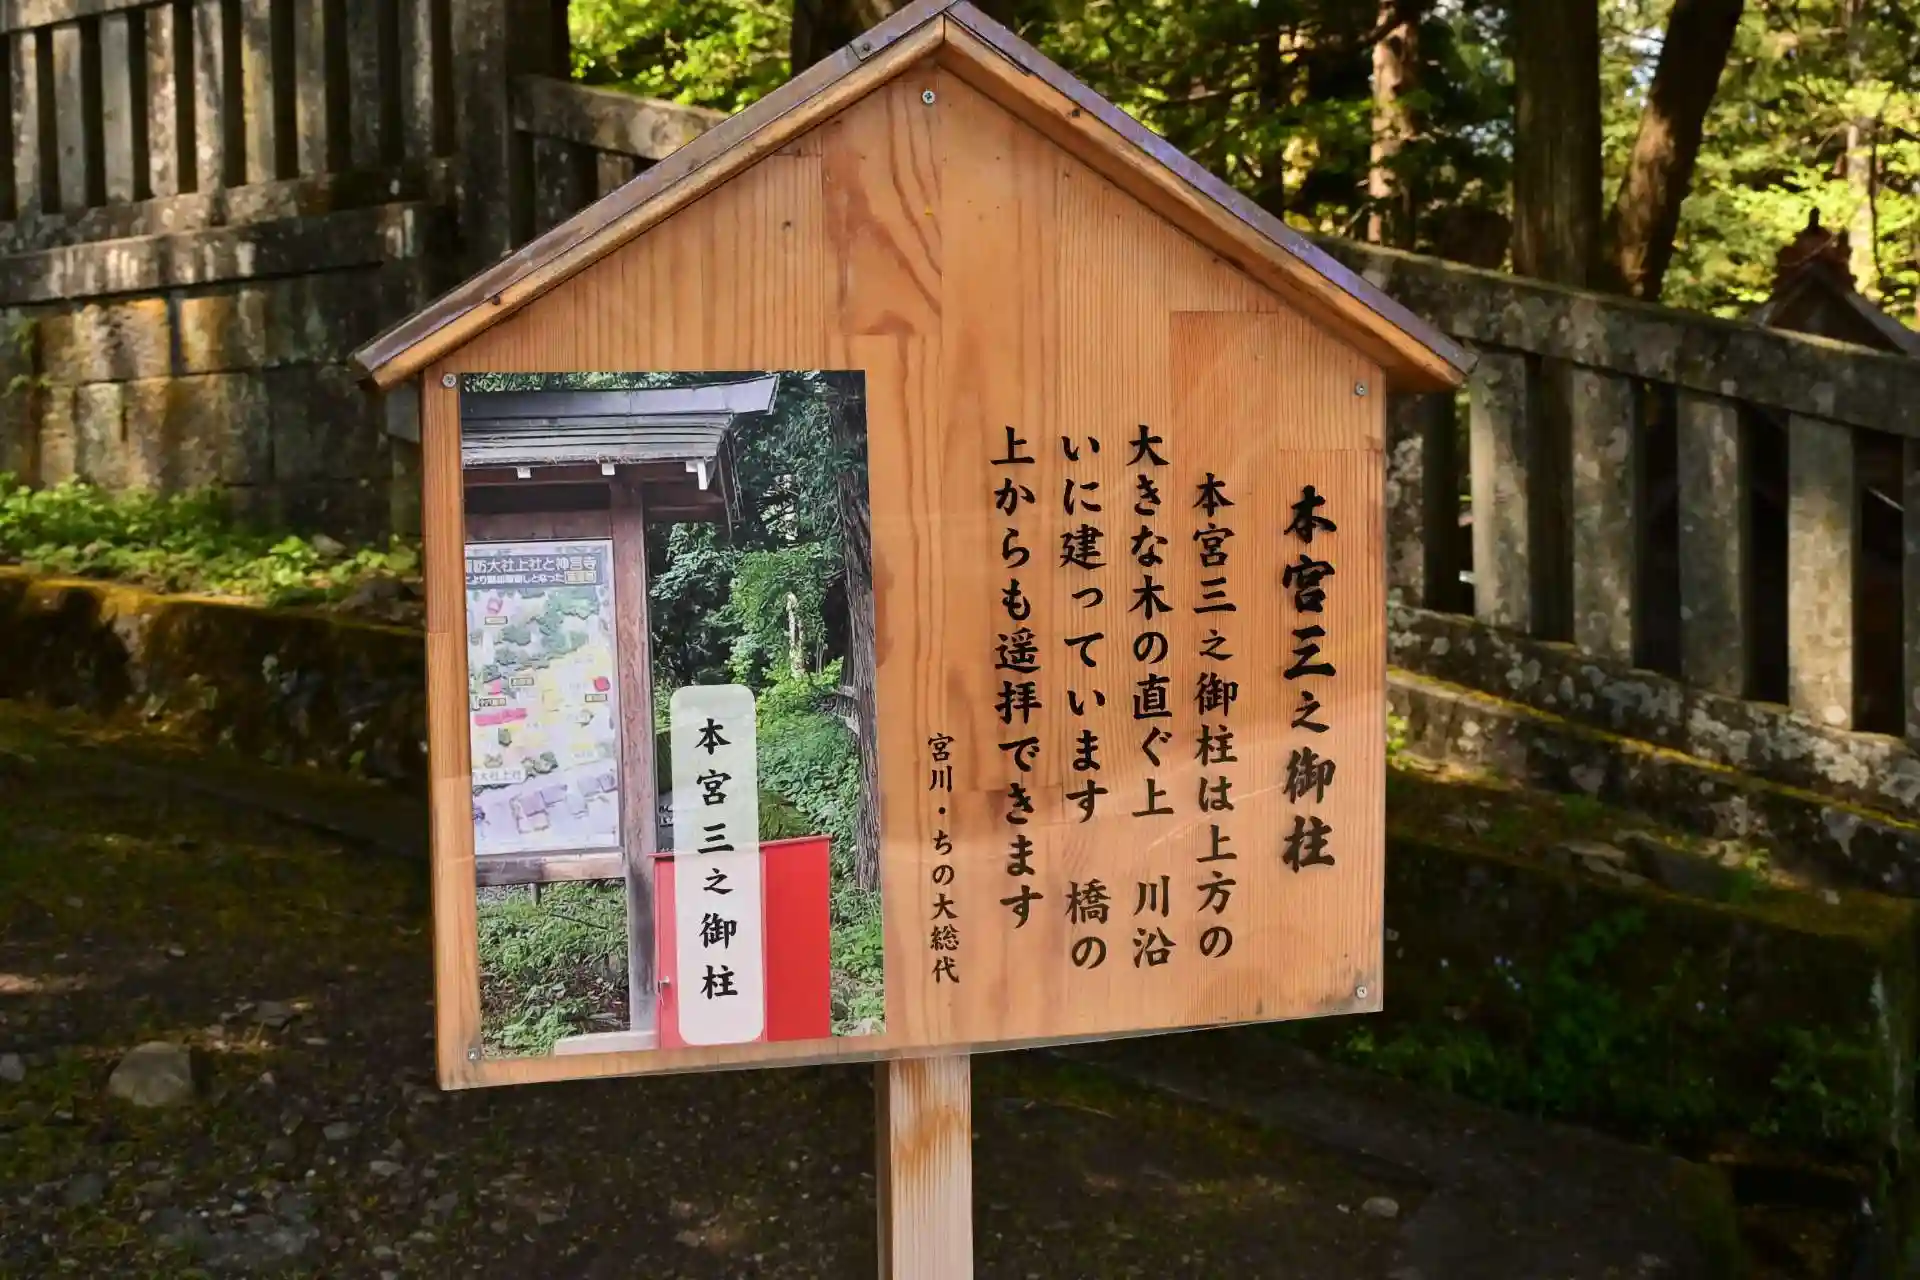 本宮三之御柱
本宮三之御柱は上方の
大きな木の直ぐ上　川沿
いに建っています　橋の
上からも遥拝できます
宮川・ちの大総代
諏訪大社上社と神宮寺
本宮三之御柱